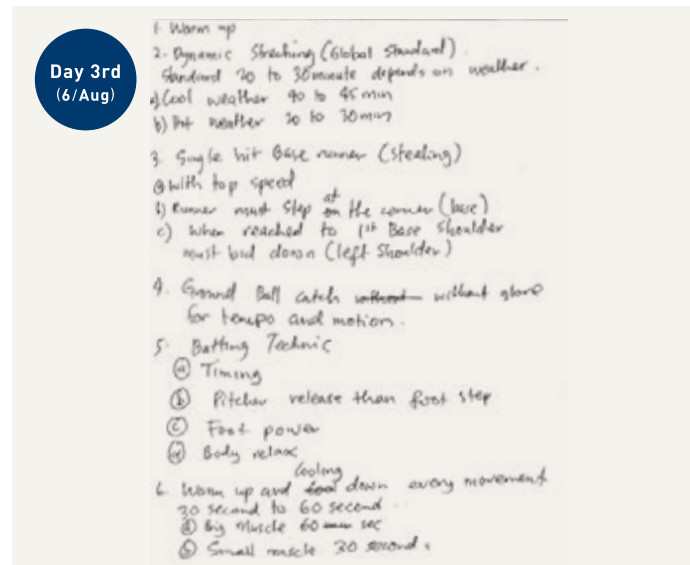 Day 3rd
(6/Aug)
1. Warm up
2. Dynamic Streching (Global Standard).
Standard 20 to 30 minute depends on weather.
a) Cool weather 40 to 45 min
b) Hot weather 20 to 30 min
3. Single hit Base runner (Stealing)
a With top speed
b) Runner must step on at the corner (base)
c) When reached to 1st Base Shoulder
must down (left Shoulder)
4. Ground Ball catch without without glove
for tempo and motion.
5. Batting Technic
a Timing
b Pitcher release than foot step
c Foot power
d Body relax
6. Warm up and cool Cooling down every movement
30 second to 60 second.
a Big Muscle 60 sec
b Small muscle 30 second.